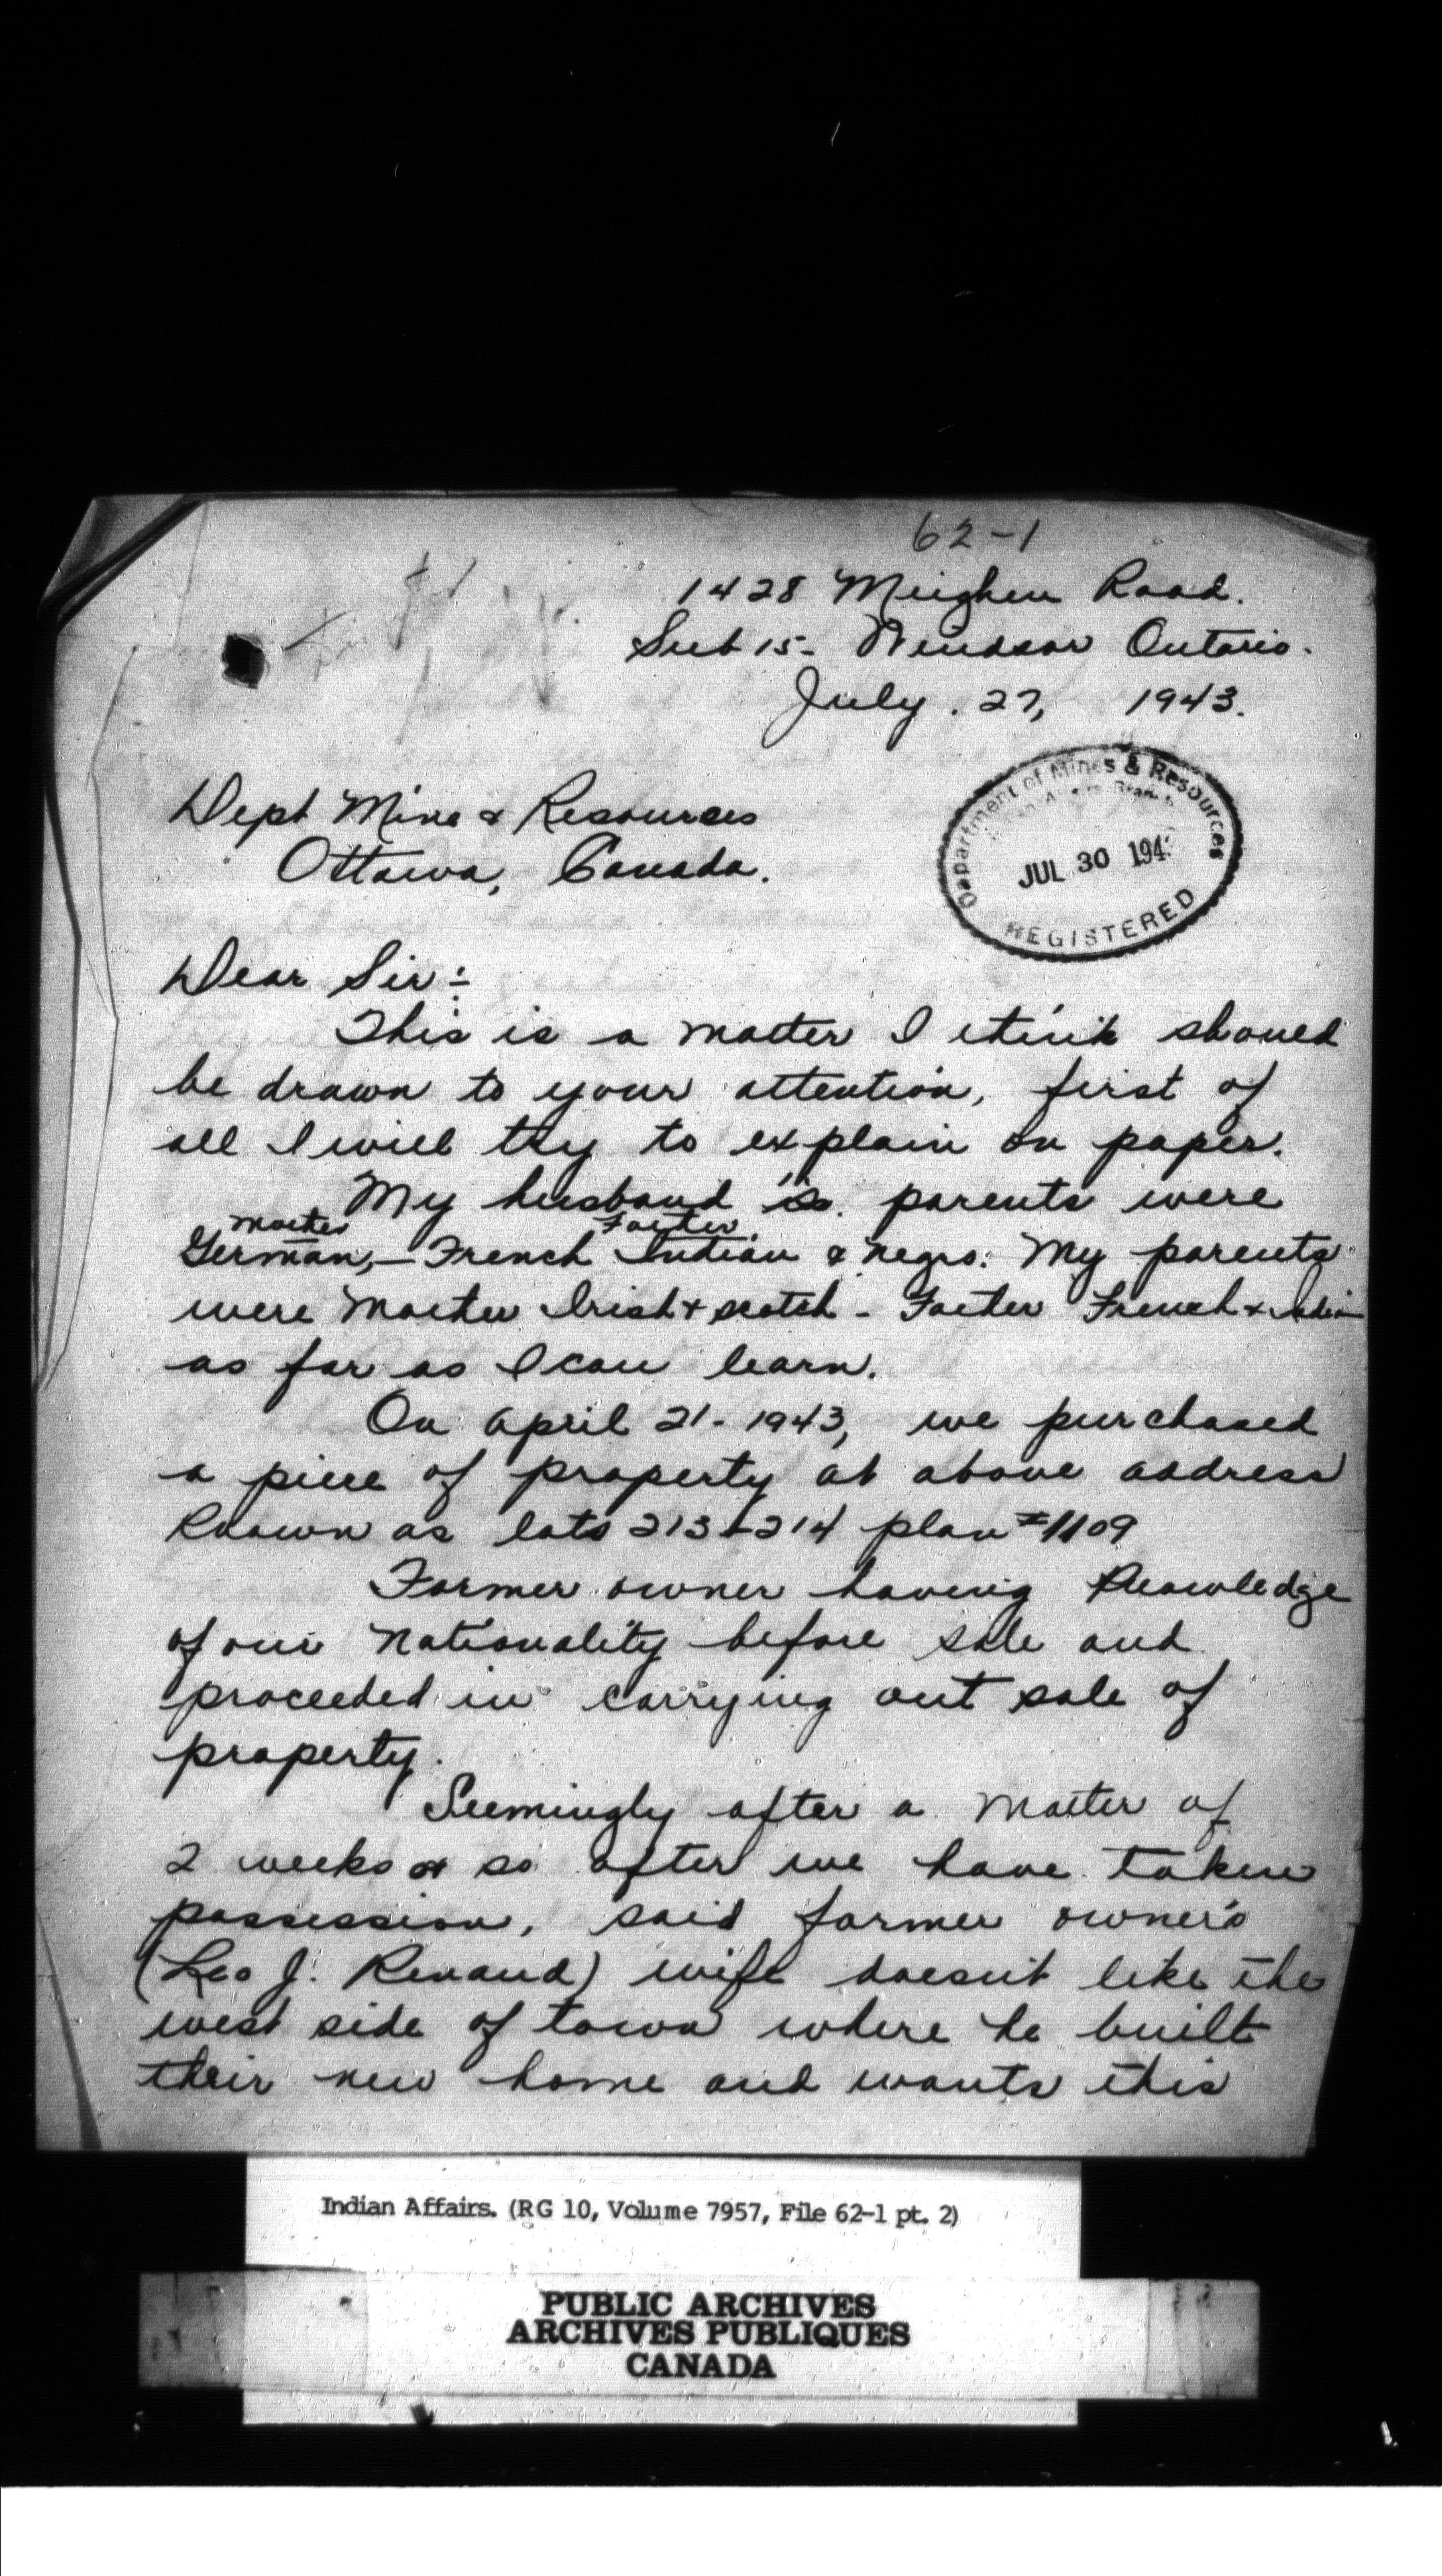 62-1
1428 Meighen Road.
Sub 15- Windsor Ontario.
July. 27, 1943.
Department of Mines & Resources
Indian Affairs Branch
JUL 30 194
REGISTERED
Dept Mine & Resources
Ottawa, Canada.
Dear Sir:-
This is a matter I think should
be drawn to your attention, first of
all I will try to explain on paper.
My husband's parents were
Mother Father
German,- French Indian & negro. My parents
were Mother Irish & scotch - Father French & Indian
as far as I can learn.
On April 21-1943, we purchased
a piece of property at above address
Known as lots 213-214 plan #1109
Former owner having Knowledge
of our Nationality before sale and
proceeded in carrying out sale of
property.
Seemingly after a matter of
2 weeks or so after we have taken
possession, said former owner's
(Leo J. Renaud) wife doesn't like the
west side of town where he built
their new home and wants this
Indian Affairs. (RG 10, Volume 7957, File 62-1 pt. 2)
PUBLIC ARCHIVES
ARCHIVES PUBLIQUES
CANADA